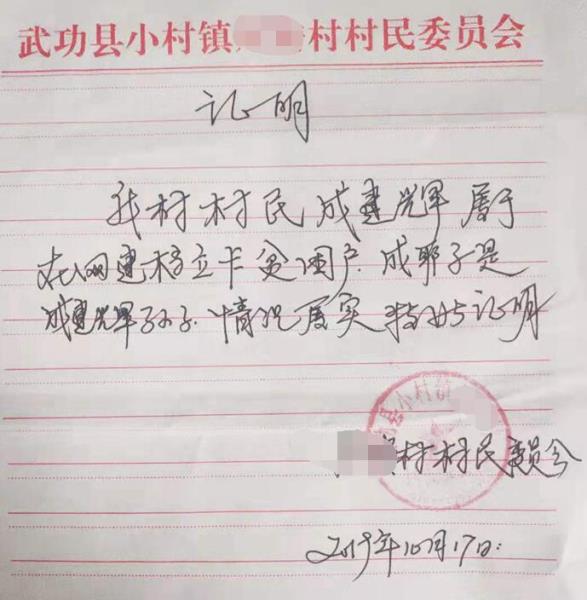 武功县小村镇 村村民委员会
证明
我村村民成建辉属于
在网建档立卡贫困户.成耶子是
成建辉孙子.情况属实特此证明
县小村镇
村村民委员会
2019年10月17日: